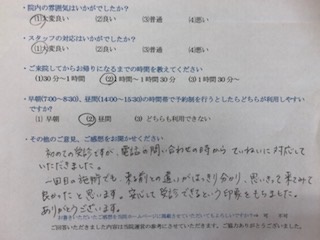 ・院内の雰囲気はいかがでしたか?
(1)大変良い (2)良い (3)普通 (4)悪い
・スタッフの対応はいかがでしたか?
(1)大変良い (2)良い (3)普通 (4)悪い
・ご来院してからお帰りになるまでの時間を教えてください
(1)30分~1時間 (2)1時間~1時間30分 (3)1時間30分~
・早朝(7:00~8:30)、昼間(14:00~15:30)の時間帯で予約制を行うとしたらどちらが利用しやすい
ですか?
(1)早朝 (2)昼間 (3)どちらも利用できない
・その他のご意見、ご感想をお聞かせください
初めての受診ですが、電話の問い合わせの時から ていねいに対応して
いただきました。
一回目の施術でも、来る前との違いがはっきり分かり、思いきって来てみて
良かったと思います。安心して受診できるという印象をもちました。
ありがとうございます。
ご回答いただきました内容は当院運営の参考にさせていただきます。ご協力ありがとうございました。